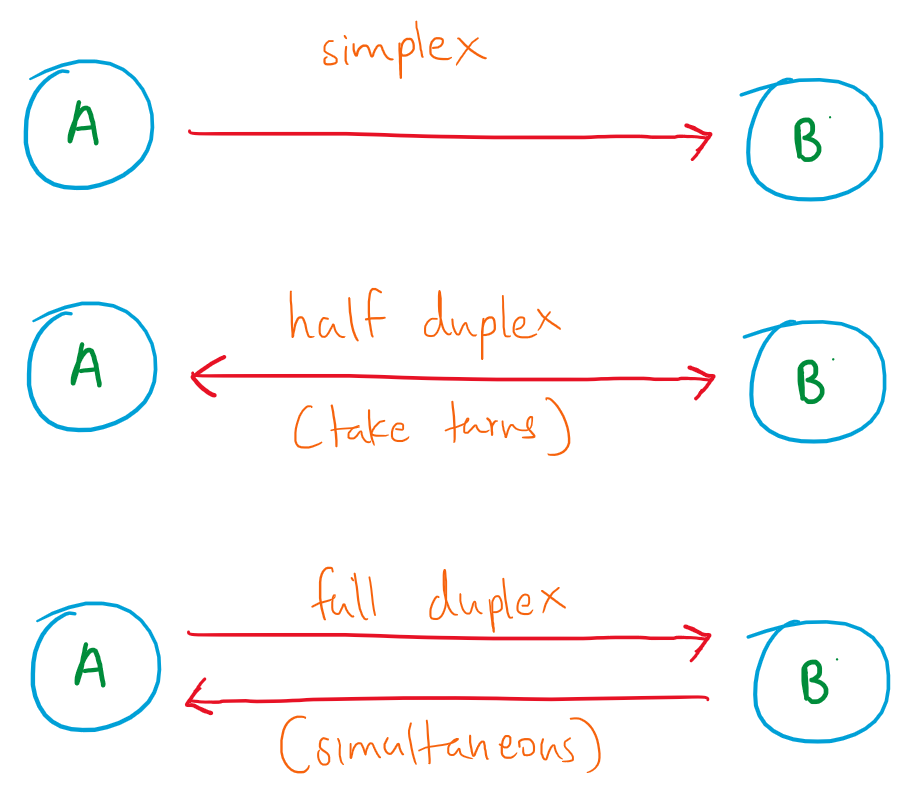 simplex
A B
half duplex
A B
(take turns)
full duplex
A B
(simultaneous)